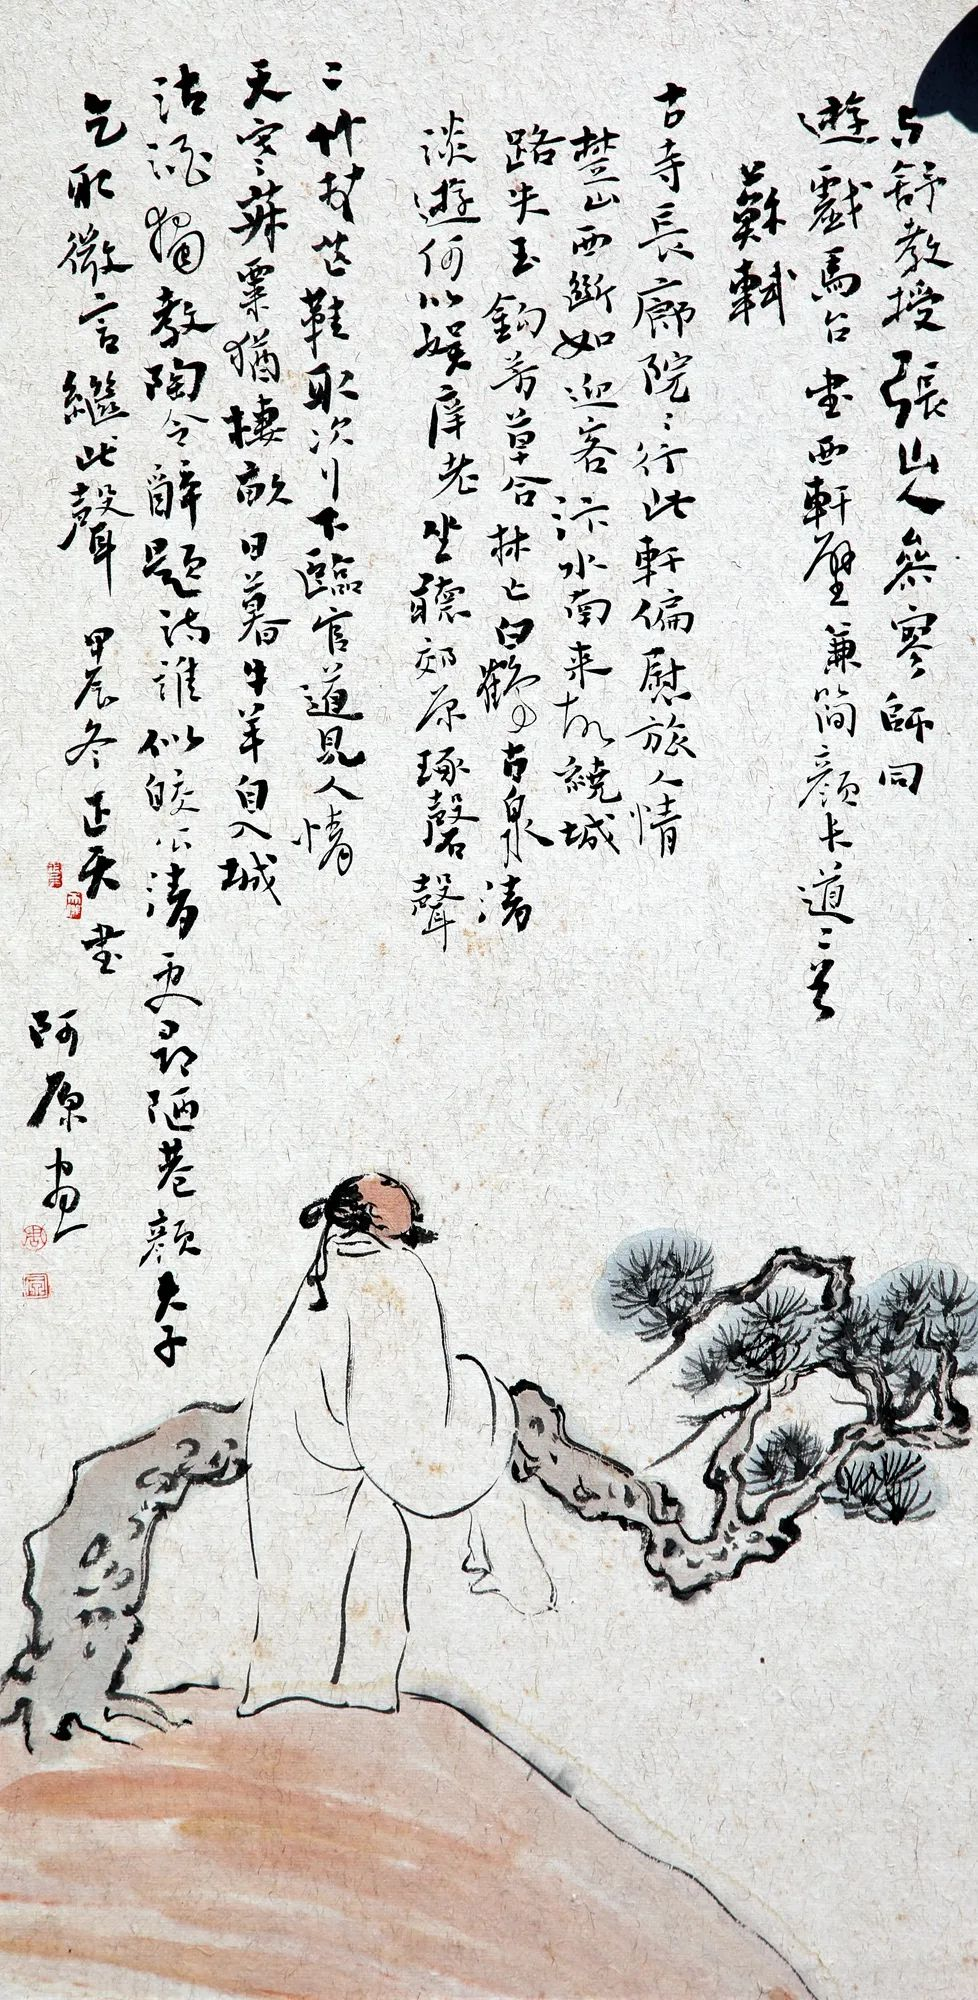 与舒教授張山人參寥師同
遊戲馬台書西軒壁兼簡顔长道二首
蘇軾
古寺長廊院〻行此軒偏慰旅人情
楚山西斷如迎客汴水南来故繞城
路失玉鈎芳草合林亡白鶴古泉清
淡遊何以娱庠老坐聽郊原琢磬聲
二竹杖芒鞋取次行下臨官道見人情
天寒菽粟猶棲畝日暮牛羊自入城
沽酒獨教陶令醉题詩誰似皎公清更尋陋巷顔夫子
乞取微言繼此聲 甲辰冬正天書
阿原畫